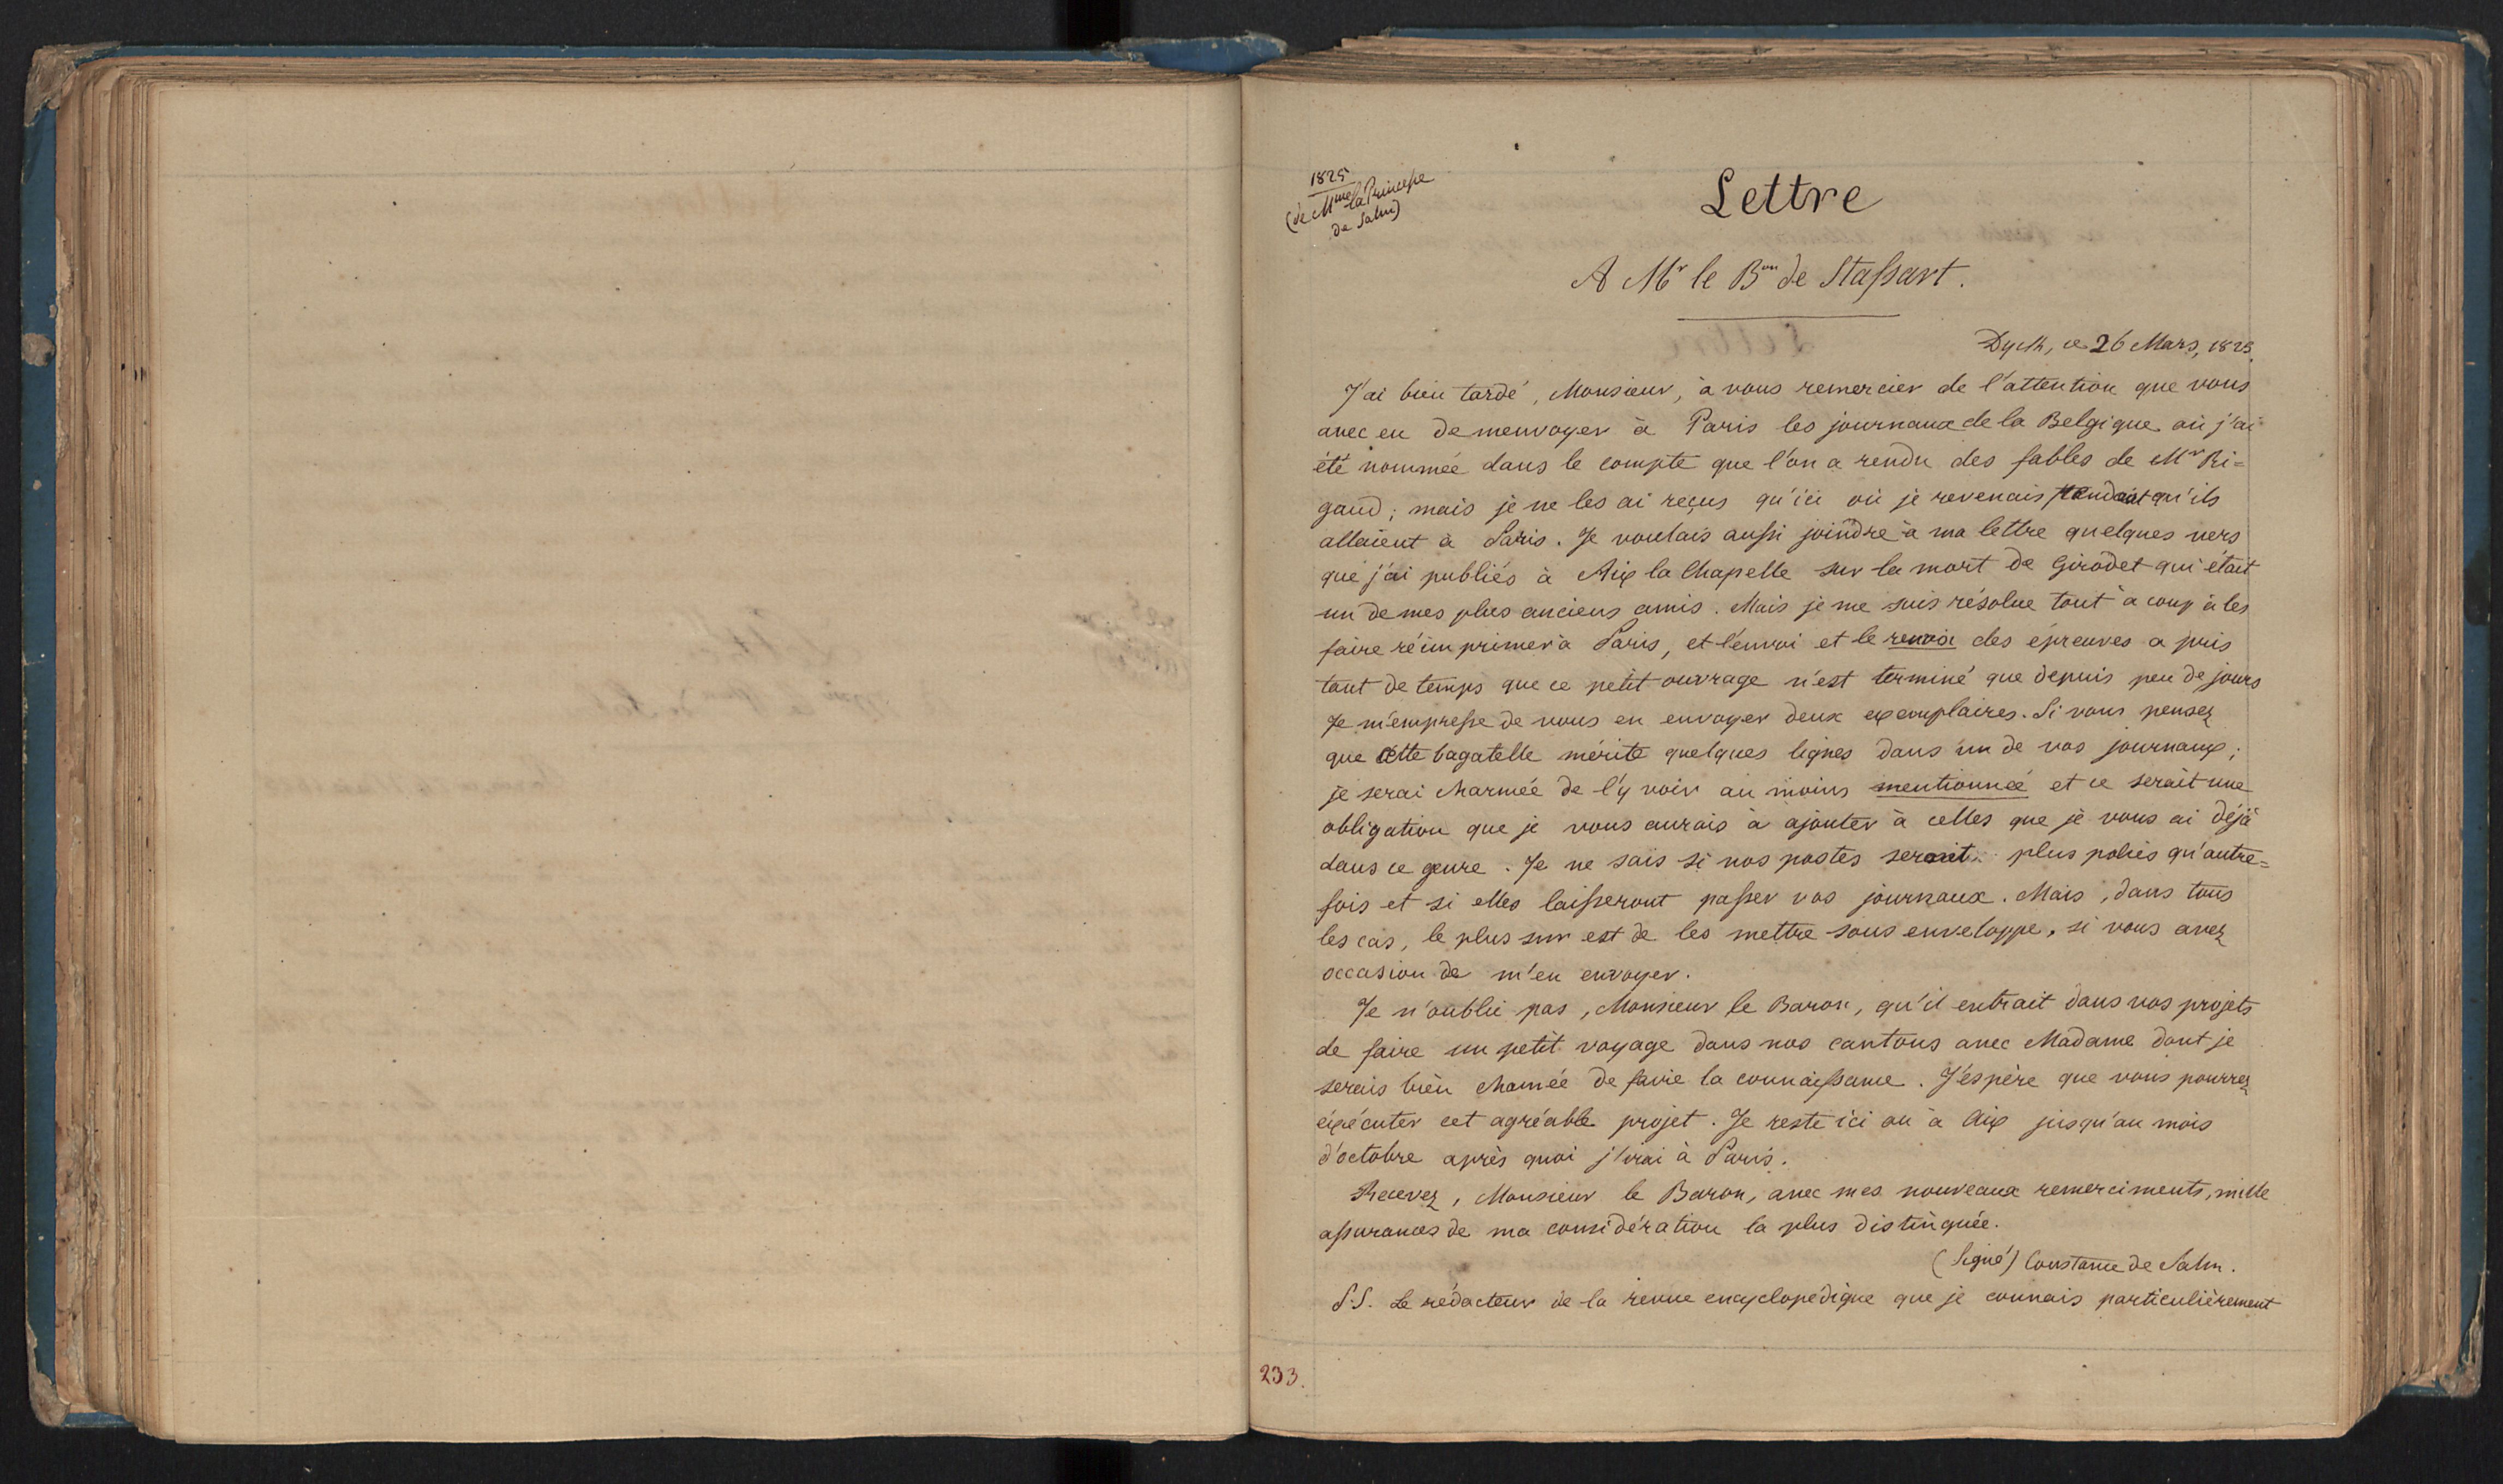 1825
(de Mme la Princesse
de Salm)
Lettre
A Mr le Bon de Stassart.
Dyck, ce 26 Mars, 1825.
J'ai bien tardé, Monsieur, à vous remercier de l'attention que vous
avec eu de menvoyer à Paris les journaux de la Belgique où j'ai
été nommée dans le compte que l'on a rendu des fables de Mr Ri=
gaud; mais je ne les ai reçus qu'ici où je revenais pendant qu'ils
allaient à Paris. Je voulais aussi joindre à ma lettre quelques vers
que j'ai publiés à Aix la Chapelle sur la mort de Girodet qui était
un de mes plus anciens amis. Mais je me suis résolue tout à coup à les
faire réimprimer à Paris, et l'envoi et le renvoi des épreuves a pris
tant de temps que ce petit ouvrage n'est terminé que depuis peu de jours
Je m'empresse de vous en envoyer deux exemplaires. Si vous pensez
que cette bagatelle mérite quelques lignes dans un de vos journaux;
je serai charmée de l'y voir au moins mentionnée et ce serait une
obligation que je vous aurais à ajouter à celles que je vous ai déjà
dans ce genre. Je ne sais si nos postes seront plus polies qu'autre=
fois et si elles laisseront passer vos journaux. Mais, dans tous
les cas, le plus sur est de les mettre sous enveloppe, si vous avez
occasion de m'en envoyer.
Je n'oublie pas, Monsieur le Baron, qu'il entrait dans vos projets
de faire un petit voyage dans nos cantons avec Madame dont je
serais bien chamée de faire la connaissance. J'espère que vous pourrez
exécuter cet agréable projet. Je reste ici ou à Aix jusqu'au mois
d'octobre après quoi j'irai à Paris.
Recevez, Monsieur le Baron, avec mes nouveaux remerciments, mille
assurances de ma considération la plus distinguée.
(Signé) Constance de Salm.
P.S. Le rédacteur de la revue encyclopédique que je connais particulièrement
233.